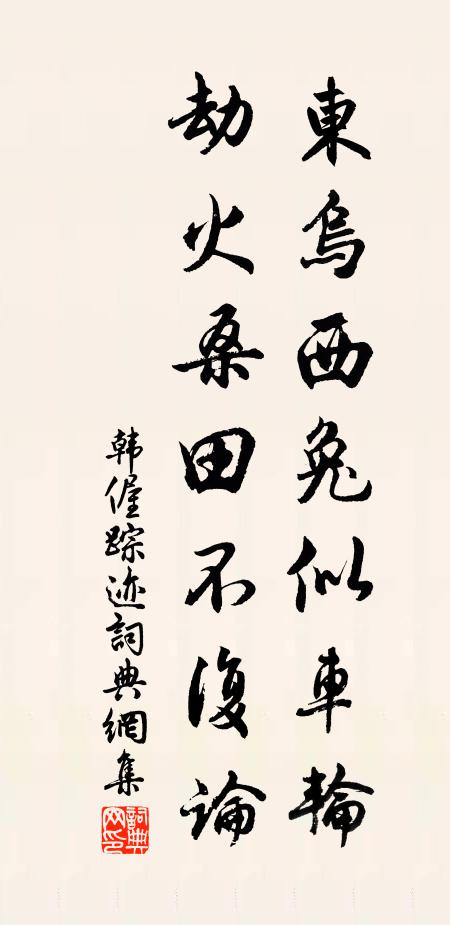 東烏西兔似車輪
劫火桑田不復論
韩偓踪迹詞典網集
詞典网印